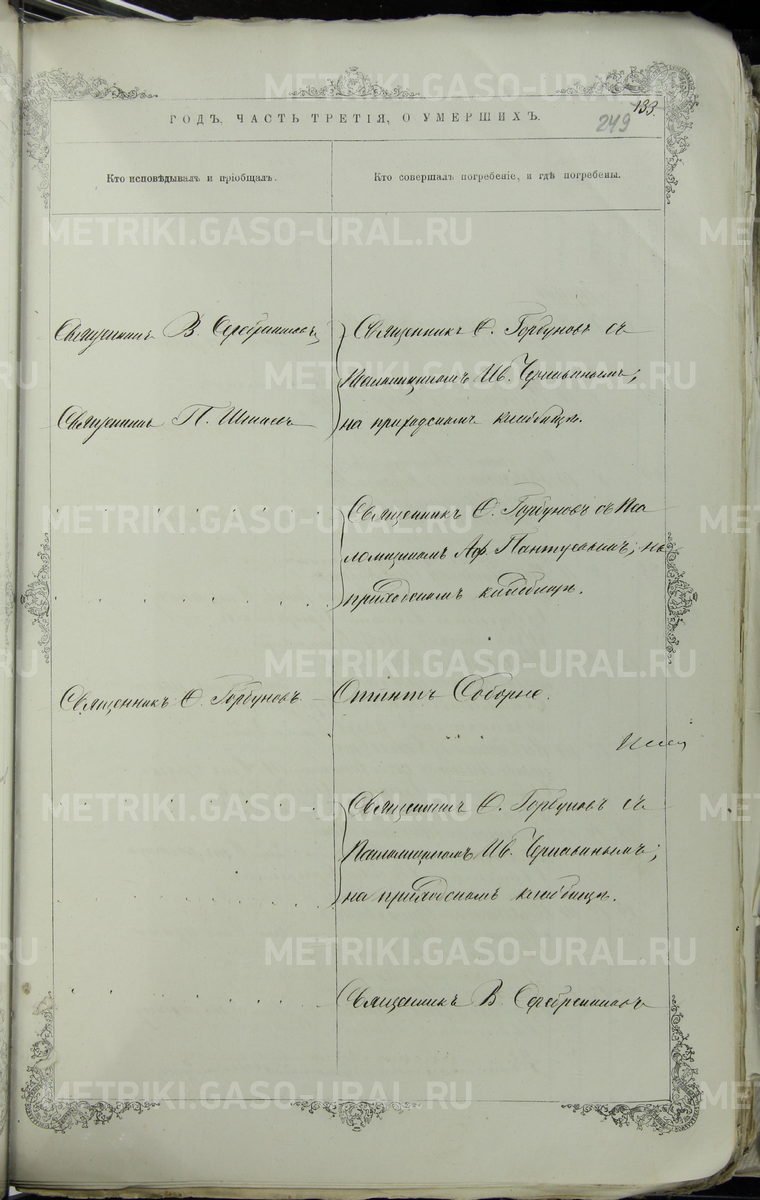 133.
249
ГОДЪ. ЧАСТЬ ТРЕТІЯ, О УМЕРШИХЪ.
Кто исповѣдывалъ и пріобщалъ.
Кто совершалъ погребеніе, и гдѣ погребены.
Священникъ В. Серебренниковъ
Священникъ Ѳ. Горбуновъ съ
Псаломщикомъ Ив. Чернавинымъ;
Священникъ П.
на приходскомъ кладбищѣ.
Священникъ Ѳ. Горбуновъ съ Пса
ломщикомъ Аф. Пантуевымъ; на
приходскомъ кладбищѣ.
Священникъ Ѳ. Горбуновъ. Отпѣтъ Соборне.
Священникъ Ѳ. Горбуновъ съ
Псаломщикомъ Ив. Чернавинымъ;
на приходскомъ кладбищѣ.
Священникъ В Серебренниковъ
METRIKI.GASO-URAL.RU